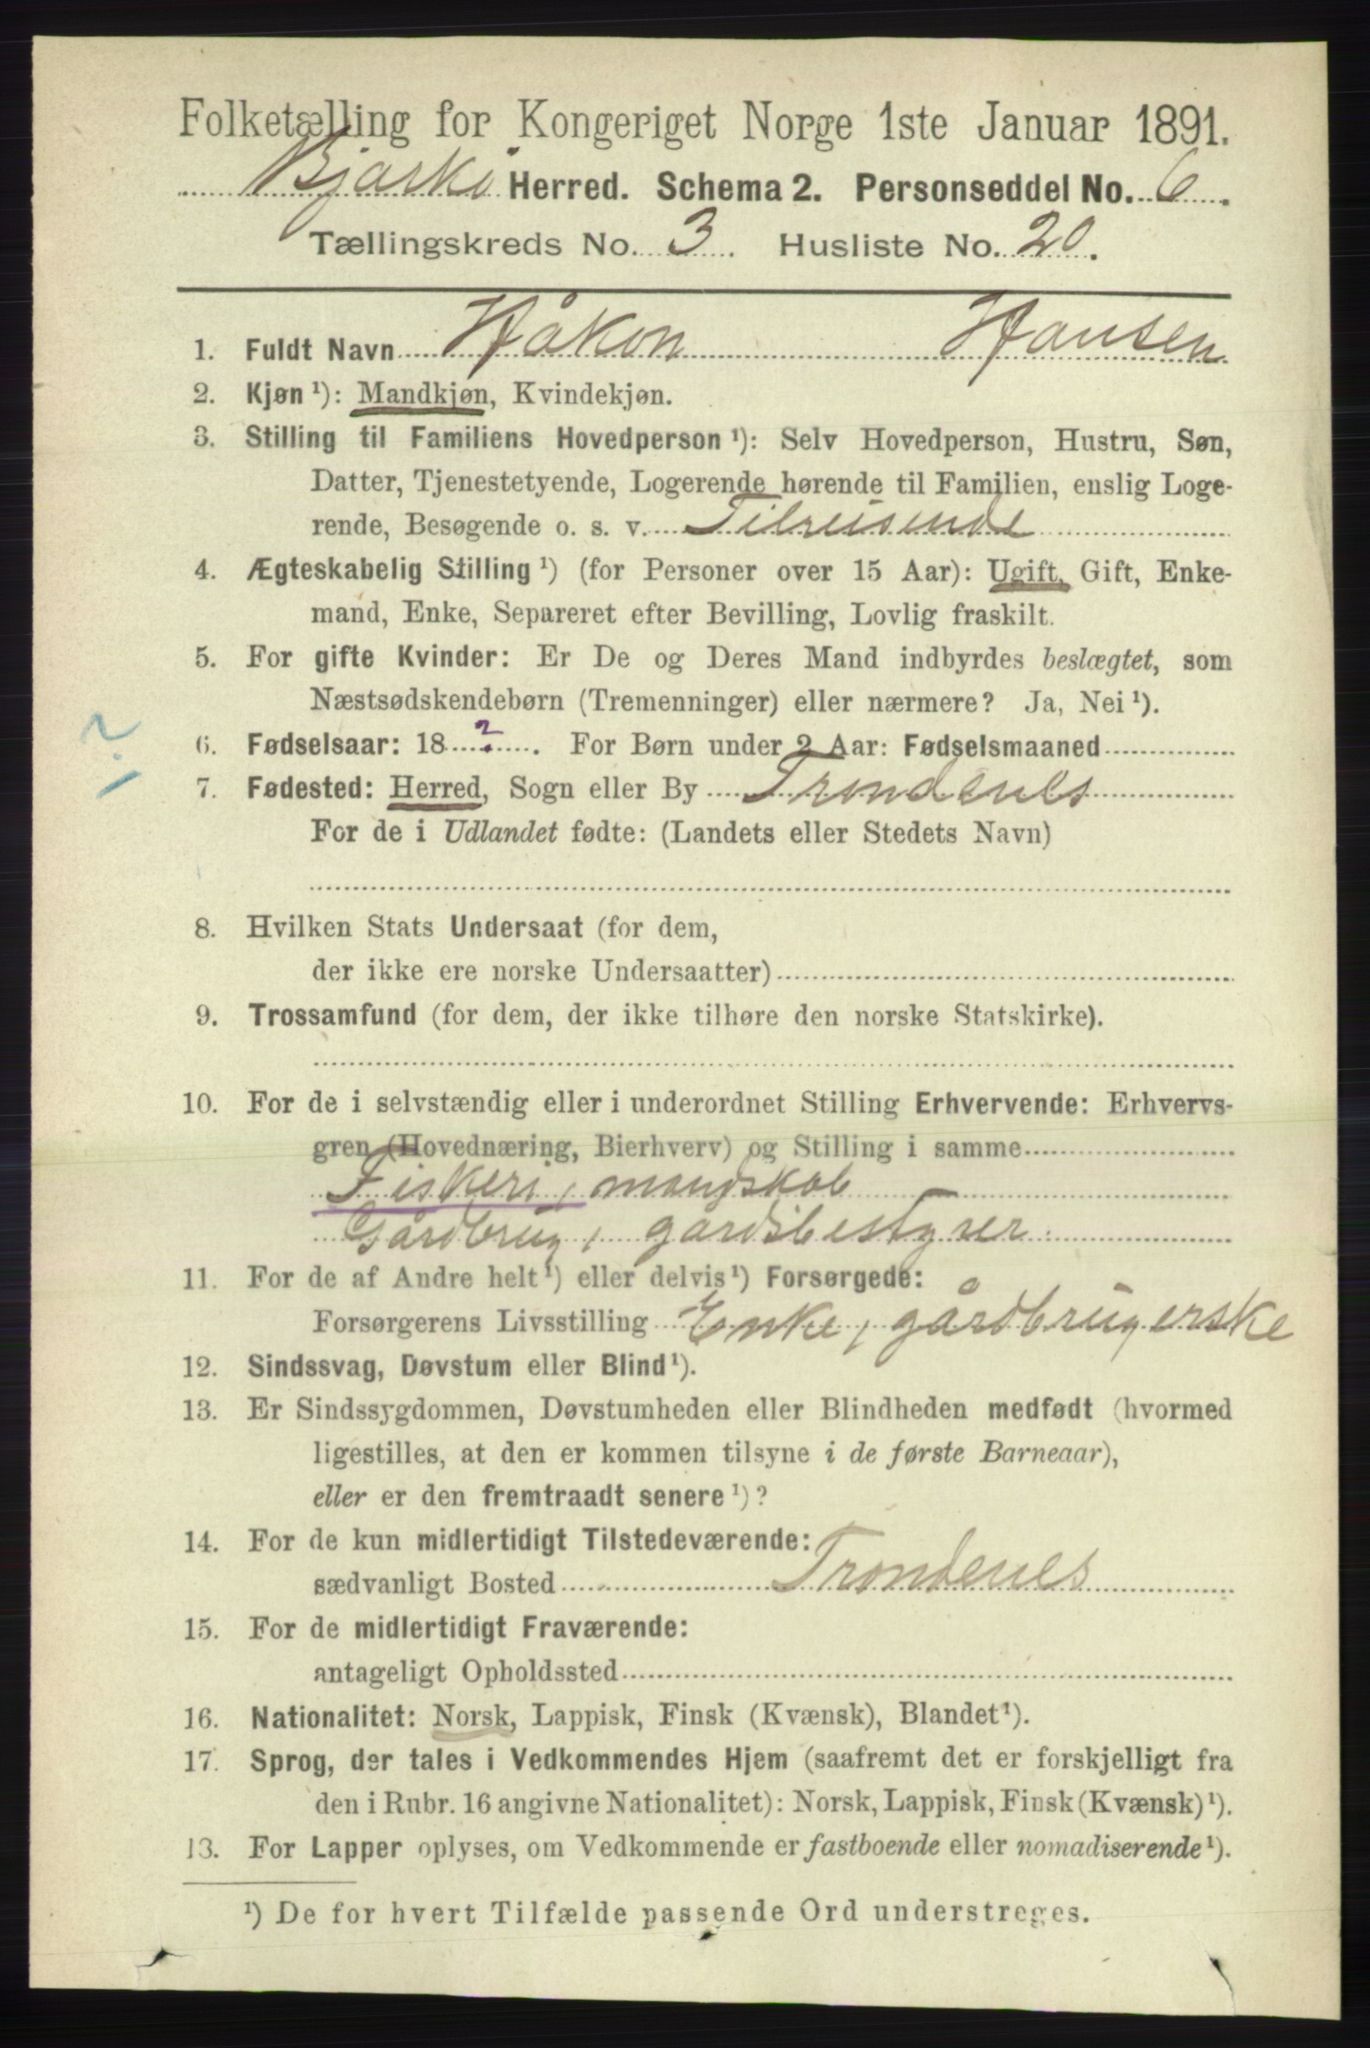 Folketælling for Kongeriget Norge 1ste Januar 1891.
Bjarkö Herred. Schema 2. Personseddel No. 6.
Tællingskreds No. 3. Husliste No. 20.
1. Fuldt Navn Håkon Hansen
2. Kjøn ¹): Mandkjøn, Kvindekjøn.
3. Stilling til Familiens Hovedperson ¹): Selv Hovedperson, Hustru, Søn,
Datter, Tjenestetyende, Logerende hørende til Familien, enslig Loge-
rende, Besøgende o. s. v. Tilreisende
4. Ægteskabelig Stilling ¹) (for Personer over 15 Aar): Ugift, Gift, Enke-
mand, Enke, Separeret efter Bevilling, Lovlig fraskilt.
5. For gifte Kvinder: Er De og Deres Mand indbyrdes beslægtet, som
Næstsødskendebørn (Tremenninger) eller nærmere? Ja, Nei ¹).
?
6. Fødselsaar: 18 ?. For Børn under 2 Aar: Fødselsmaaned
7. Fødested: Herred, Sogn eller By Trondenes
For de i Udlandet fødte: (Landets eller Stedets Navn)
8. Hvilken Stats Undersaat (for dem,
der ikke ere norske Undersaatter)
9. Trossamfund (for dem, der ikke tilhøre den norske Statskirke).
10. For de i selvstændig eller i underordnet Stilling Erhvervende: Erhvervs-
gren (Hovednæring, Bierhverv) og Stilling i samme
Fiskeri, mandskab
Gårdbrug, gårdsbestyrer.
11. For de af Andre helt ¹) eller delvis ¹) Forsørgede:
Forsørgerens Livsstilling Enke, gårdbrugerske
12. Sindssvag, Døvstum eller Blind ¹).
13. Er Sindssygdommen, Døvstumheden eller Blindheden medfødt (hvormed
ligestilles, at den er kommen tilsyne i de første Barneaar),
eller er den fremtraadt senere ¹)?
14. For de kun midlertidigt Tilstedeværende:
sædvanligt Bosted Trondenes
15. For de midlertidigt Fraværende:
antageligt Opholdssted
16. Nationalitet: Norsk, Lappisk, Finsk (Kvænsk), Blandet ¹).
17. Sprog, der tales i Vedkommendes Hjem (saafremt det er forskjelligt fra
den i Rubr. 16 angivne Nationalitet): Norsk, Lappisk, Finsk (Kvænsk) ¹).
13. For Lapper oplyses, om Vedkommende er fastboende eller nomadiserende ¹).
¹) De for hvert Tilfælde passende Ord understreges.